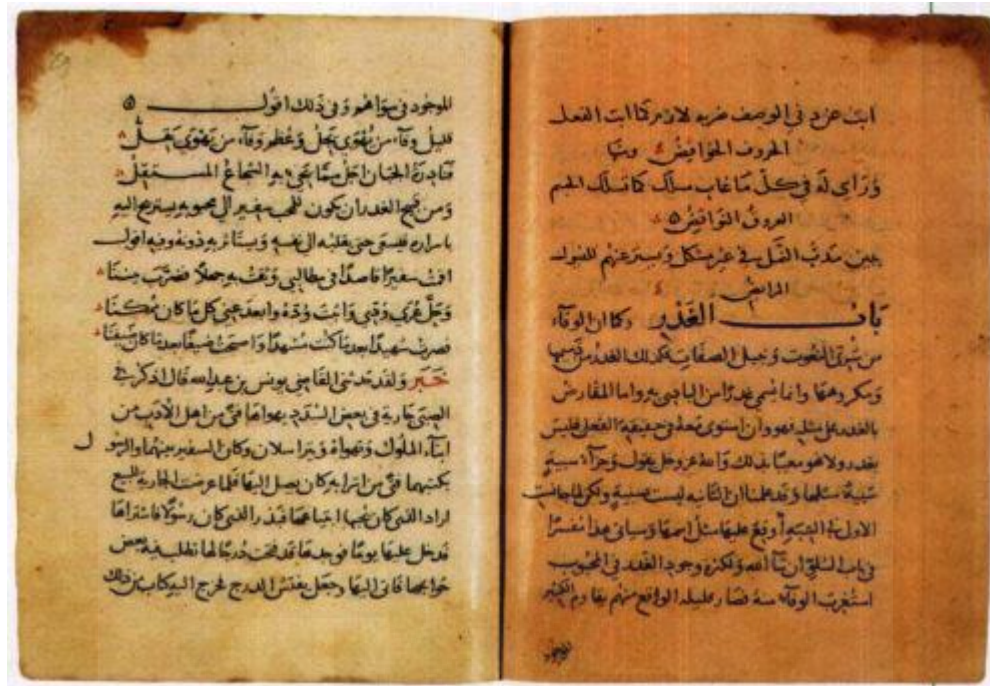 ابت عن د في الوصف ضربه لازم كما ابت الفعل
الحروف الخوافض ومنها
وَرَاي لَه في كلّ مَا غاب مسلك كما تسلك الجسم
العروق النوابض
يبين مدبّ النمل في غير مشكل ويستر عنهم للفيول
المرابض
بَاب الغَدْر وكما ان الوفاء
من سَرِيّ النعوت وَنبيل الصفات فكذلك الغدر من ذميمها
وَمكروهها وانما يسمى غدرًا من البادي به واما المقارض
بالغدر على مثله فهو وان استوى معه في حقيقة الفعل فليس
بغدر ولا هو معيبًا بذلك والله عز وجل يقول وَجَزآءُ سيئة
سَيّئة مثلها وقد علمنا ان الثانيه ليست بسيئة ولكن لما جانست
الاولى في الشبه أوقع عليها مثل اسمها وسياتي هذا مفسرًا
في باب السلوّ ان شآ الله ولكثرة وجود الغدر في المحبوب
استُغرب الوفاء منه فصار قليله الواقع منهم يقاوم الكثير
الموجود
الموجُود في سواهم وَفي ذَلك اقول
قليل وفآء من يُهْوَى يجلّ وَعُظم وفآء من يَهْوَى يَقلّ
فَنادرة الجبان اجلّ ممّا يَجيء به الشجاعُ المستقلّ
وَمن قبيح الغدر ان يكون للمحب سفير الى محبوبه يستريح اليه
باسراره فيسعى حتى يقلبه الى نفسه وَيستاثر به دونه وفيه اقول
اقمتُ سفيرًا قاصدًا في مطالبي وَثقت به جهلًا فضرّب بيننا
وَحَلّ عُرَى وُدّي وَاثبت وُدّهُ وابعدَ عني كل مَا كان ممكنا
فصرت شهيدًا بعدمَا كنت مُشهِدًا وَاصبحت ضيفًا بعدمَا كان ضيفنا
خَبر وَلقد حدثني القاضي يونس بن عبد الله قال اذكر في
الصبى جارية في بعض السدد يهواهَا فتى من اهل الادب من
ابنآء الملوك وَتهواه وَيتراسلان وكان السفير بينهما والرسول
بكتبهما فتى من اترابه كان يصل اليهَا فلما عرضت الجارية للبيع
اراد الذي كان يحبها ابتياعهَا فبدر الذي كان رسولا فاشتراها
فدخل عليها يومًا فوجدهَا قد فتحت دُرجًا لها تطلب فيه بعض
حَوائجها فاتى اليهَا وَجعل يفتش الدرج فخرج اليه كتاب من ذلك